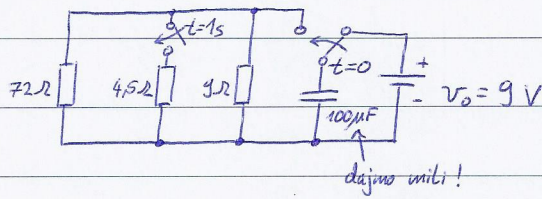 t=1s
72Ω
4,5Ω
9Ω
t=0
100μF
+
-
v₀ = 9 V
dajmo mili !